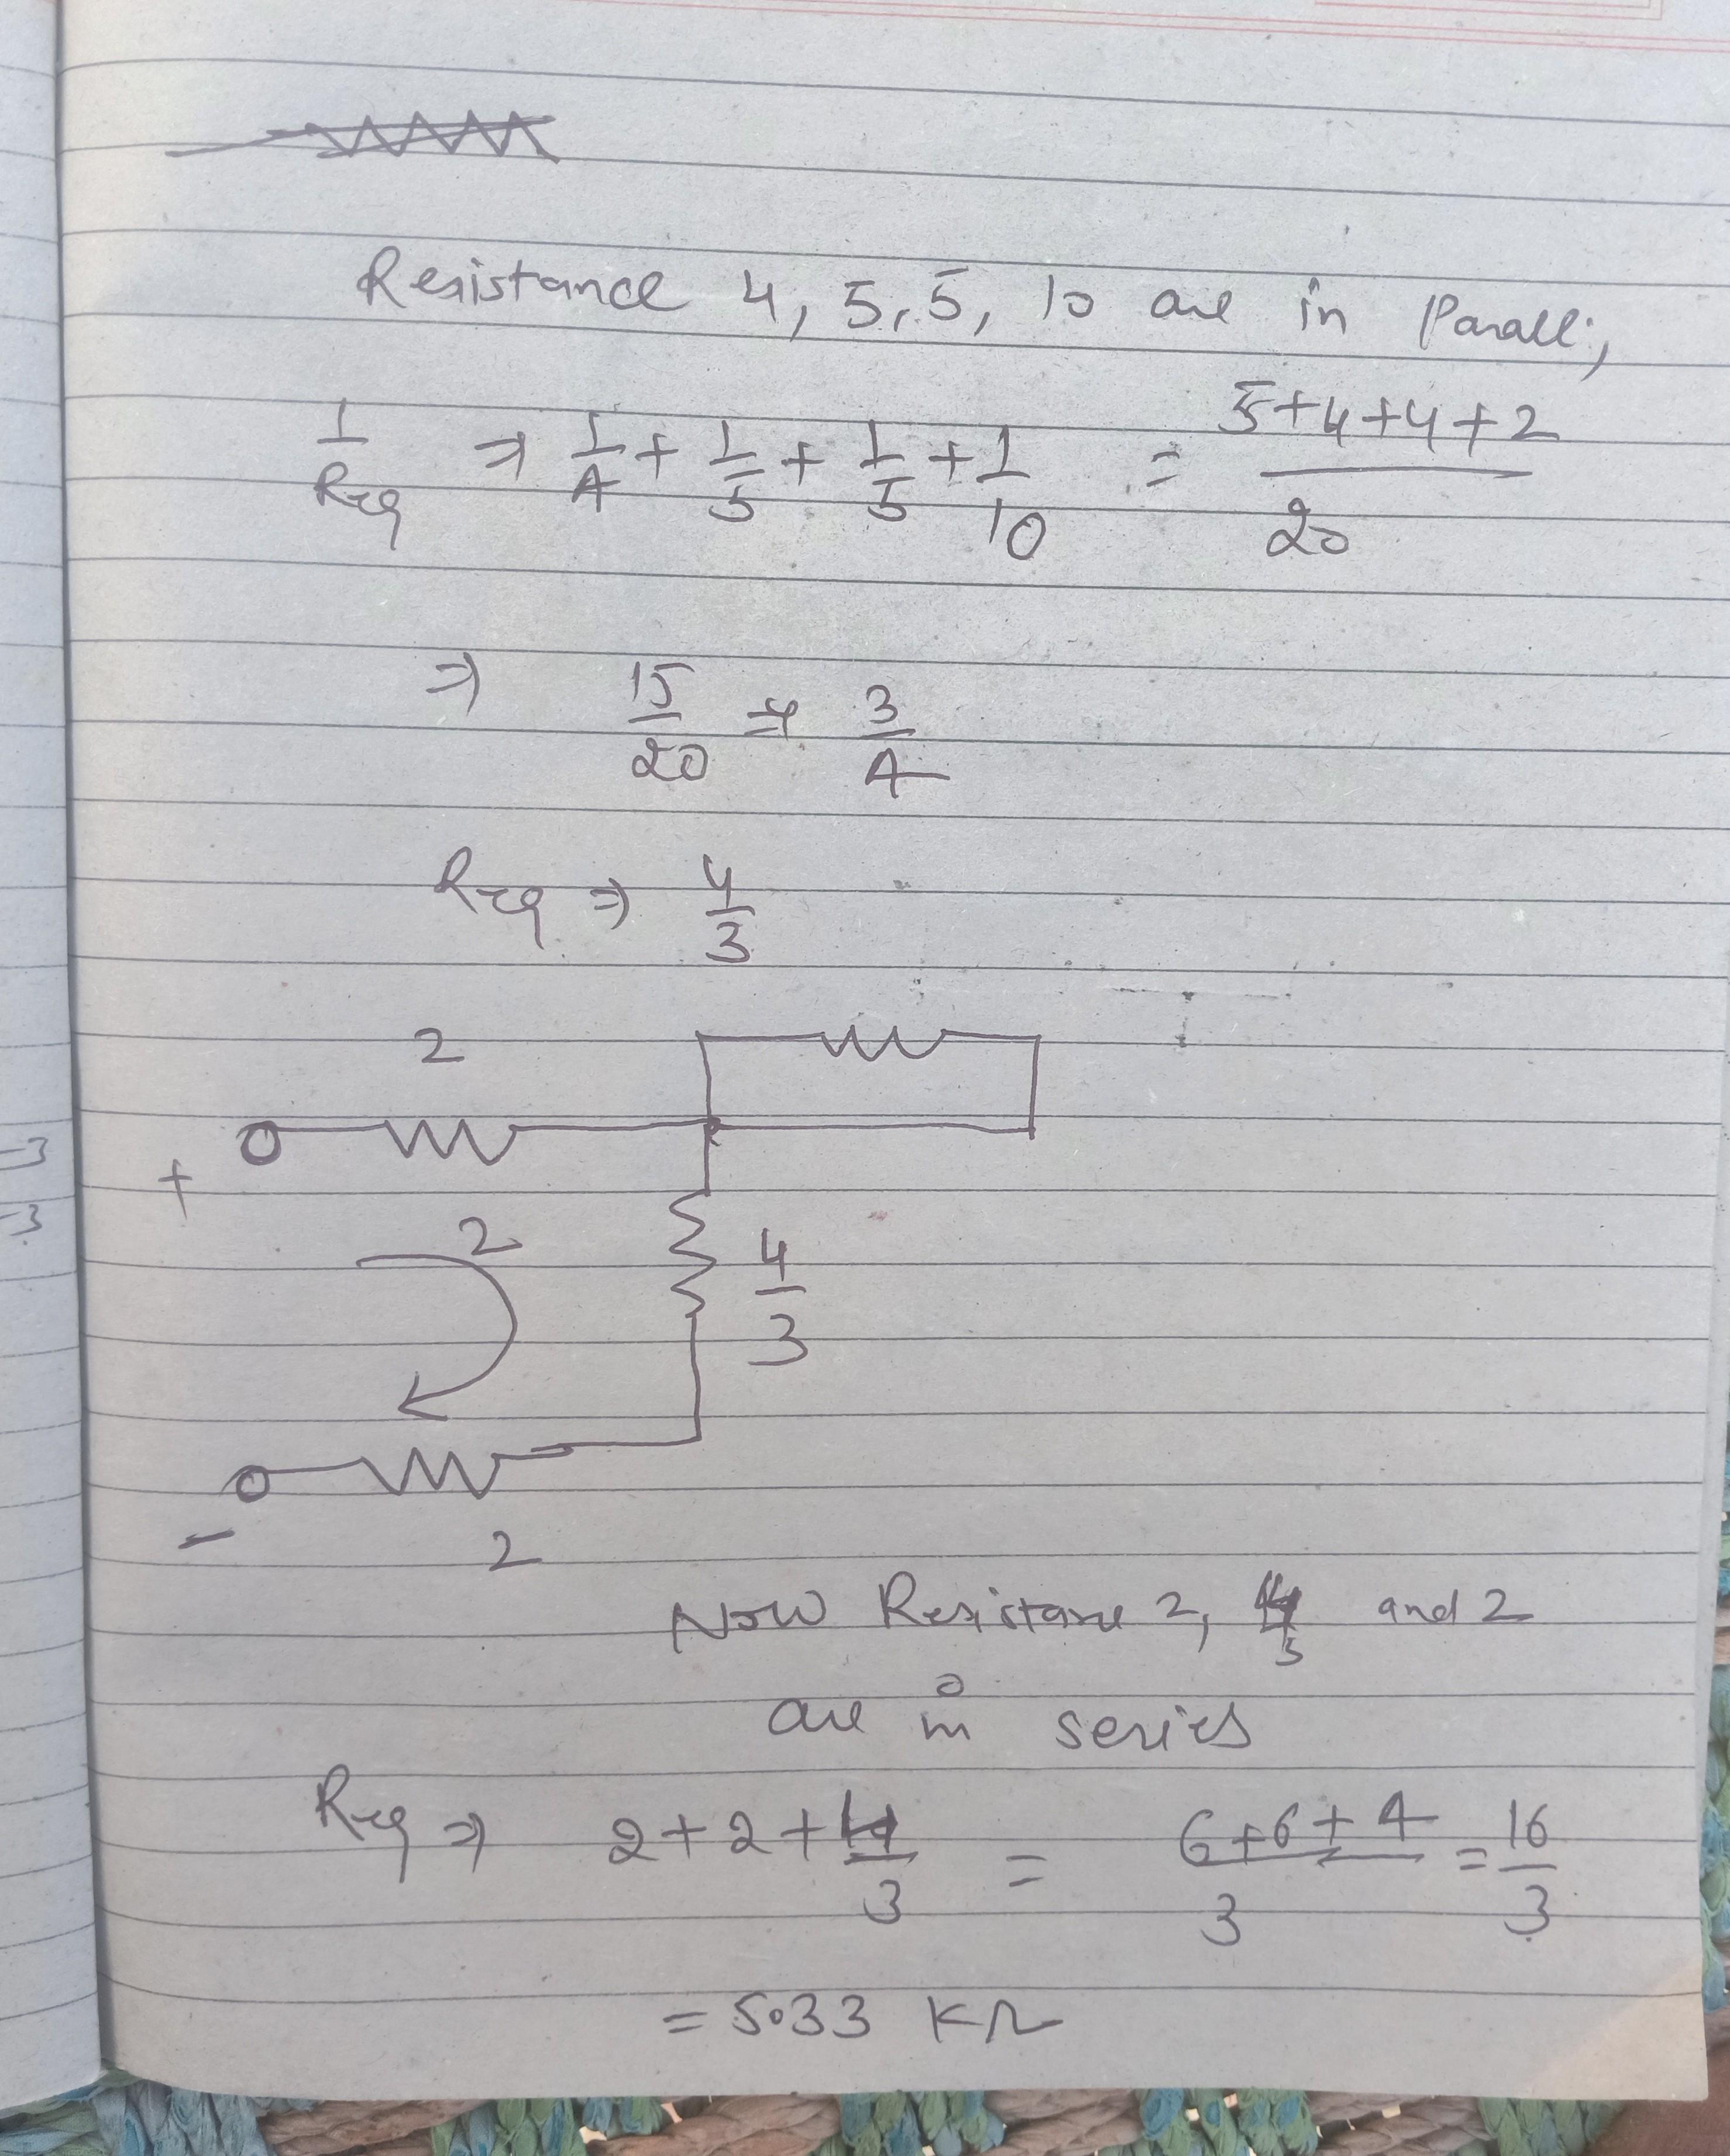 Resistance 4, 5, 5, 10 are in Parall;
1/Req ⇒ 1/4 + 1/5 + 1/5 + 1/10 = 5+4+4+2/20
⇒ 15/20 ⇒ 3/4
Req ⇒ 4/3
2
+
2
4/3
-
2
Now Resistance 2, 4/3 and 2
are in series
Req ⇒ 2+2+4/3 = 6+6+4/3 = 16/3
= 5.33 KΩ